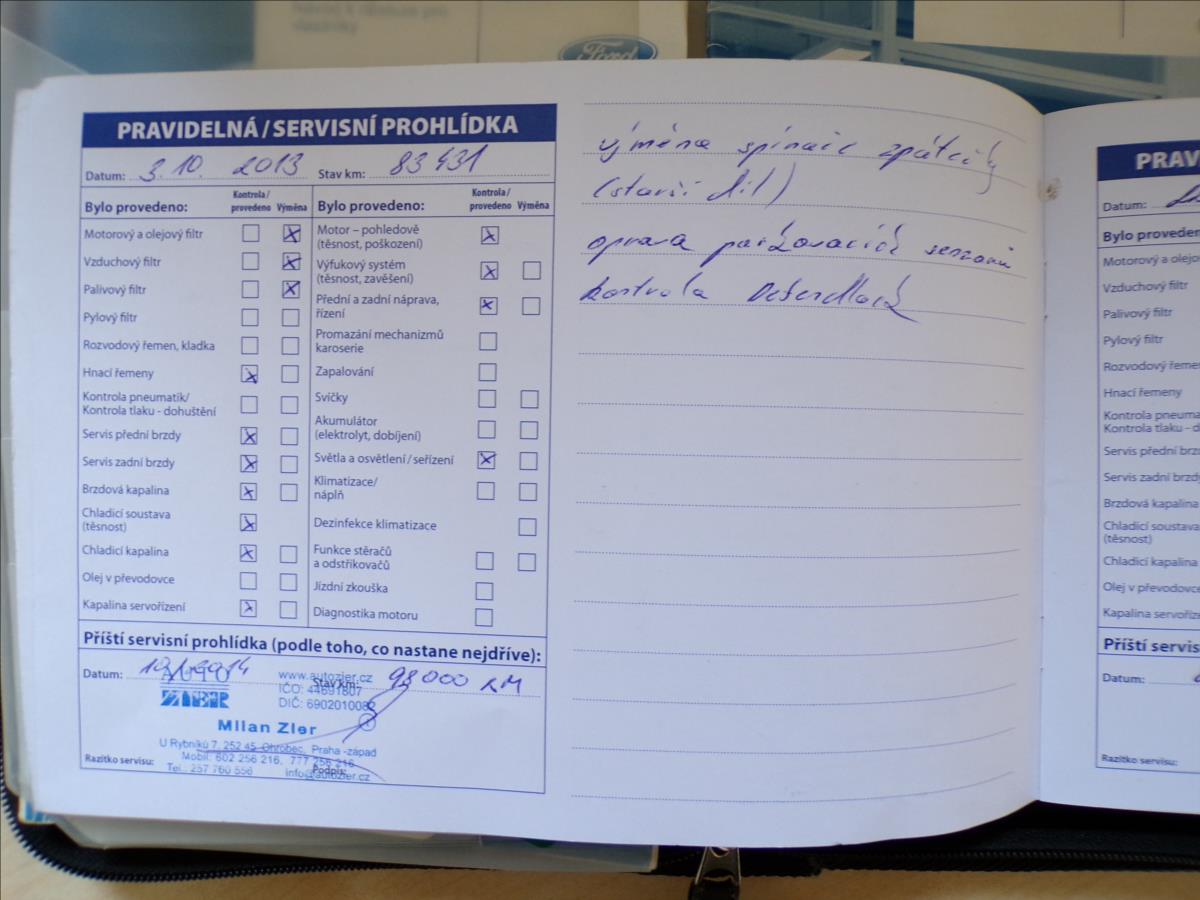 Návod k obsluze pro
vlastníky
Ford
PRAVIDELNÁ / SERVISNÍ PROHLÍDKA
Datum: 3.10. 2013 Stav km: 83 431
Bylo provedeno: Kontrola / provedeno Výměna
Motorový a olejový filtr
Vzduchový filtr
Palivový filtr
Pylový filtr
Rozvodový řemen, kladka
Hnací řemeny
Kontrola pneumatik/
Kontrola tlaku - dohuštění
Servis přední brzdy
Servis zadní brzdy
Brzdová kapalina
Chladicí soustava
(těsnost)
Chladicí kapalina
Olej v převodovce
Kapalina servořízení
Bylo provedeno: Kontrola / provedeno Výměna
Motor – pohledově
(těsnost, poškození)
Výfukový systém
(těsnost, zavěšení)
Přední a zadní náprava,
řízení
Promazání mechanizmů
karoserie
Zapalování
Svíčky
Akumulátor
(elektrolyt, dobíjení)
Světla a osvětlení / seřízení
Klimatizace/
náplň
Dezinfekce klimatizace
Funkce stěračů
a odstřikovačů
Jízdní zkouška
Diagnostika motoru
Příští servisní prohlídka (podle toho, co nastane nejdříve):
Datum: 10/2014 Stav km: 98 000 KM
AUTO
ZIER
www.autozier.cz
IČO: 44691807
DIČ: 6902010082
Milan Zier
U Rybníků 7, 252 45 Ohrobec, Praha -západ
Mobil: 602 256 216, 777 256 216
Tel.: 257 760 556 info@autozier.cz
Razítko servisu: Podpis:
výměna spínače zpátečky
(starší díl)
oprava parkovacích senzorů
kontrola
PRAV
Datum:
Bylo provedeno
Motorový a olejo
Vzduchový filtr
Palivový filtr
Pylový filtr
Rozvodový řeme
Hnací řemeny
Kontrola pneuma
Kontrola tlaku - d
Servis přední brz
Servis zadní brzd
Brzdová kapalina
Chladicí soustava
(těsnost)
Chladicí kapalina
Olej v převodovc
Kapalina servoříz
Příští servis
Datum:
Razítko servisu: